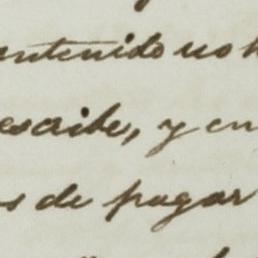 ntenido no h
escribe, y en
s de pagar